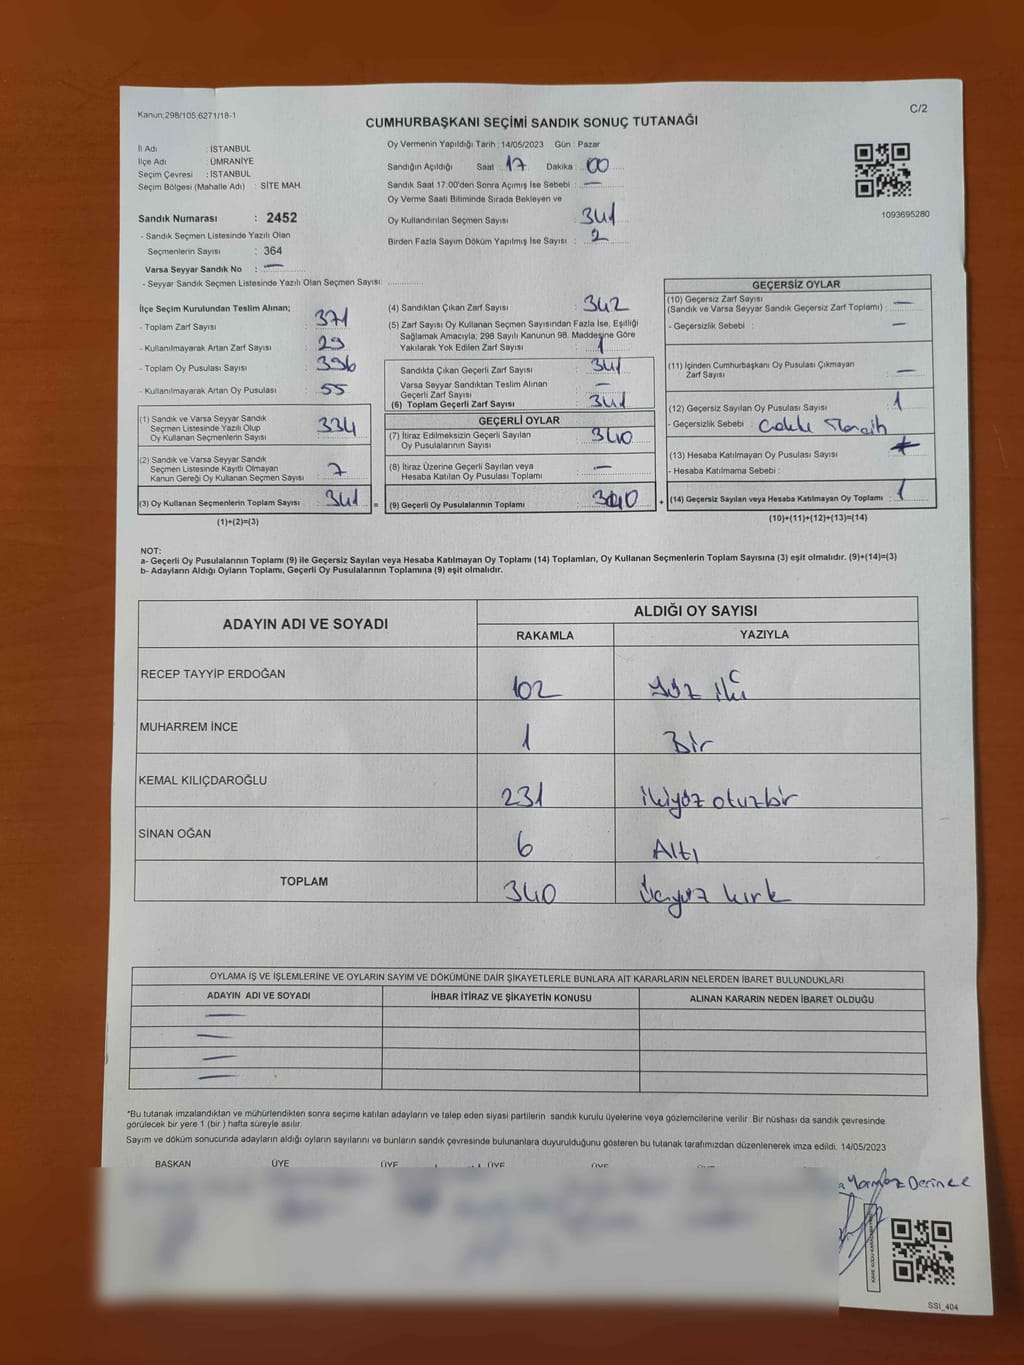 Kanun;298/105;6271/18-1
C/2
CUMHURBAŞKANI SEÇİMİ SANDIK SONUÇ TUTANAĞI
İl Adı : İSTANBUL
İlçe Adı : ÜMRANİYE
Seçim Çevresi : İSTANBUL
Seçim Bölgesi (Mahalle Adı) : SİTE MAH.
Sandık Numarası : 2452
- Sandık Seçmen Listesinde Yazılı Olan
Seçmenlerin Sayısı : 364
Varsa Seyyar Sandık No : —
- Seyyar Sandık Seçmen Listesinde Yazılı Olan Seçmen Sayısı:
Oy Vermenin Yapıldığı Tarih : 14/05/2023 Gün : Pazar
Sandığın Açıldığı Saat : 17 Dakika : 00
Sandık Saat 17:00'den Sonra Açımış İse Sebebi : —
Oy Verme Saati Bitiminde Sırada Bekleyen ve
Oy Kullandırılan Seçmen Sayısı : 341
Birden Fazla Sayım Döküm Yapılmış İse Sayısı : 2
1093695280
İlçe Seçim Kurulundan Teslim Alınan;
- Toplam Zarf Sayısı : 371
- Kullanılmayarak Artan Zarf Sayısı : 29
- Toplam Oy Pusulası Sayısı : 396
- Kullanılmayarak Artan Oy Pusulası : 55
(1) Sandık ve Varsa Seyyar Sandık
Seçmen Listesinde Yazılı Olup
Oy Kullanan Seçmenlerin Sayısı : 334
(2) Sandık ve Varsa Seyyar Sandık
Seçmen Listesinde Kayıtlı Olmayan
Kanun Gereği Oy Kullanan Seçmen Sayısı : 7
(3) Oy Kullanan Seçmenlerin Toplam Sayısı : 341 =
(1)+(2)=(3)
(4) Sandıktan Çıkan Zarf Sayısı : 342
(5) Zarf Sayısı Oy Kullanan Seçmen Sayısından Fazla İse, Eşitliği
Sağlamak Amacıyla; 298 Sayılı Kanunun 98. Maddesine Göre
Yakılarak Yok Edilen Zarf Sayısı : 1
Sandıkta Çıkan Geçerli Zarf Sayısı : 341
Varsa Seyyar Sandıktan Teslim Alınan
Geçerli Zarf Sayısı : —
(6) Toplam Geçerli Zarf Sayısı : 341
GEÇERLİ OYLAR
(7) İtiraz Edilmeksizin Geçerli Sayılan
Oy Pusulalarının Sayısı : 340
(8) İtiraz Üzerine Geçerli Sayılan veya
Hesaba Katılan Oy Pusulası Toplamı : —
(9) Geçerli Oy Pusulalarının Toplamı : 340 +
GEÇERSİZ OYLAR
(10) Geçersiz Zarf Sayısı
(Sandık ve Varsa Seyyar Sandık Geçersiz Zarf Toplamı) : —
- Geçersizlik Sebebi : —
(11) İçinden Cumhurbaşkanı Oy Pusulası Çıkmayan
Zarf Sayısı : —
(12) Geçersiz Sayılan Oy Pusulası Sayısı : 1
- Geçersizlik Sebebi :
(13) Hesaba Katılmayan Oy Pusulası Sayısı :
- Hesaba Katılmama Sebebi :
(14) Geçersiz Sayılan veya Hesaba Katılmayan Oy Toplamı : 1
(10)+(11)+(12)+(13)=(14)
NOT:
a- Geçerli Oy Pusulalarının Toplamı (9) ile Geçersiz Sayılan veya Hesaba Katılmayan Oy Toplamı (14) Toplamları, Oy Kullanan Seçmenlerin Toplam Sayısına (3) eşit olmalıdır. (9)+(14)=(3)
b- Adayların Aldığı Oyların Toplamı, Geçerli Oy Pusulalarının Toplamına (9) eşit olmalıdır.
ADAYIN ADI VE SOYADI ALDIĞI OY SAYISI
RAKAMLA YAZIYLA
RECEP TAYYİP ERDOĞAN 102 Yüz iki
MUHARREM İNCE 1 Bir
KEMAL KILIÇDAROĞLU 231 ikiyüz otuzbir
SİNAN OĞAN 6 Altı
TOPLAM 340 Üçyüz kırk
OYLAMA İŞ VE İŞLEMLERİNE VE OYLARIN SAYIM VE DÖKÜMÜNE DAİR ŞİKAYETLERLE BUNLARA AİT KARARLARIN NELERDEN İBARET BULUNDUKLARI
ADAYIN ADI VE SOYADI İHBAR İTİRAZ VE ŞİKAYETİN KONUSU ALINAN KARARIN NEDEN İBARET OLDUĞU
—
—
—
—
*Bu tutanak imzalandıktan ve mühürlendikten sonra seçime katılan adayların ve talep eden siyasi partilerin sandık kurulu üyelerine veya gözlemcilerine verilir. Bir nüshası da sandık çevresinde
görülecek bir yere 1 (bir ) hafta süreyle asılır.
Sayım ve döküm sonucunda adayların aldığı oyların sayılarını ve bunların sandık çevresinde bulunanlara duyurulduğunu gösteren bu tutanak tarafımızdan düzenlenerek imza edildi. 14/05/2023
BAŞKAN ÜYE ÜYE ÜYE ÜYE
Derince
SSI_404